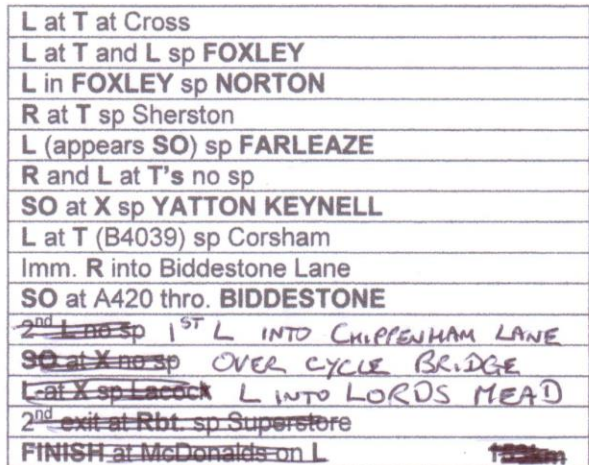 L at T at Cross
L at T and L sp FOXLEY
L in FOXLEY sp NORTON
R at T sp Sherston
L (appears SO) sp FARLEAZE
R and L at T's no sp
SO at X sp YATTON KEYNELL
L at T (B4039) sp Corsham
Imm. R into Biddestone Lane
SO at A420 thro. BIDDESTONE
2nd L no sp 1ST L INTO CHIPPENHAM LANE
SO at X no sp OVER CYCLE BRIDGE
L at X sp Lacock L INTO LORDS MEAD
2nd exit at Rbt. sp Superstore
FINISH at McDonalds on L 153km